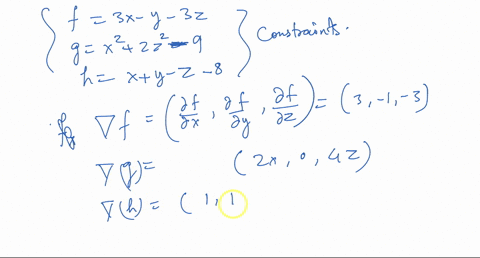 f = 3x - y - 3z
g = x² + 2z² - 9
h = x + y - z - 8
Constraints.
∇f = (∂f/∂x , ∂f/∂y , ∂f/∂z) = (3, -1, -3)
∇(g) = (2x, 0, 4z)
∇(h) = (1, 1